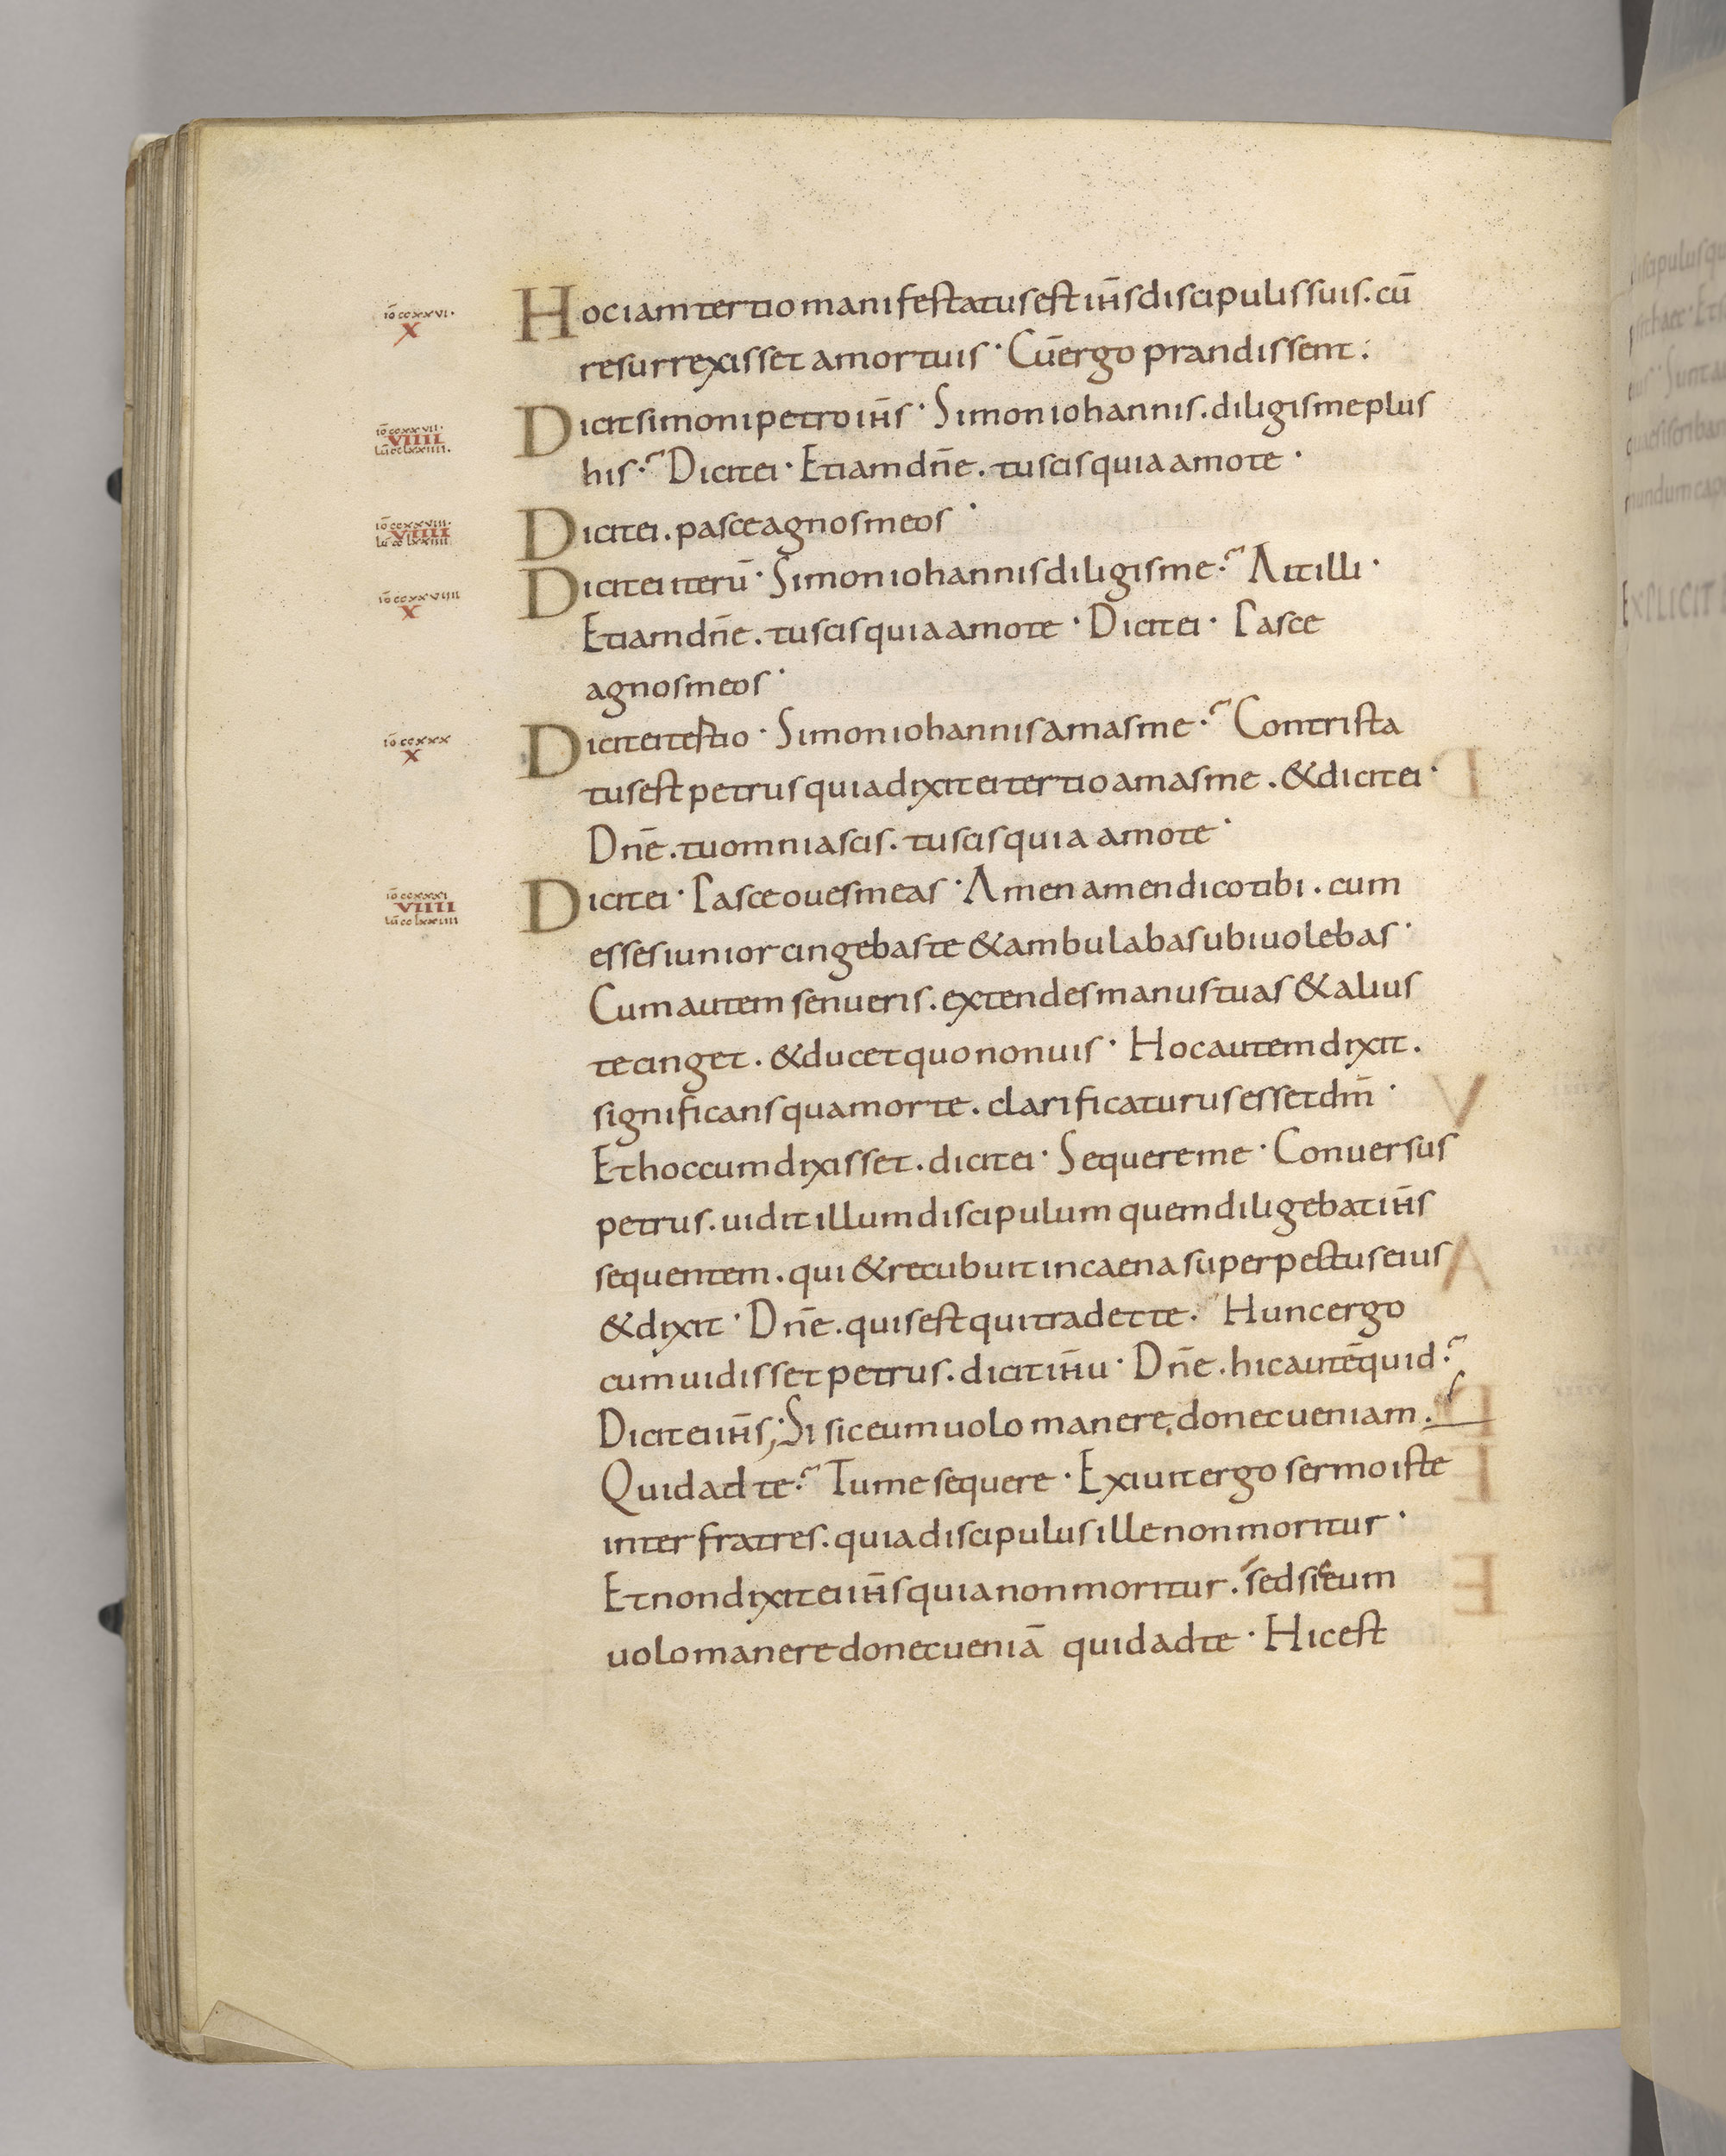 iō ccxxvi·
X
Hoc iam tertio manifestatus est ih̅s discipulis suis. cū
resurrexisset a mortuis · Cūergo prandissent:
iō ccxxvii·
VIIII
lū cclxxiiii.
Dicit simoni petro ih̅s · Simon iohannis. diligis me plus
his·? Dicit ei · Etiam dn̅e. tu scis quia amo te ·
iō ccxxviii·
VIIII
lū cclxxiiii
Dicit ei. pasce agnos meos ·
iō ccxxviiii
X
Dicit ei iterū · Simon iohannis diligis me·? Ait illi ·
Etiam dn̅e. tu scis quia amo te · Dicit ei · Pasce
agnos meos ·
iō ccxxx
X
Dicit ei testio · Simon iohannis amas me·? Contrista
tus est petrus quia dixit ei tertio amas me. & dicit ei ·
Dn̅e. tu omnia scis. tu scis quia amo te ·
iō ccxxxi
VIIII
lū cclxxiiii
Dicit ei · Pasce oues meas · Amen amen dico tibi. cum
esses iunior cingebas te & ambulabas ubi uolebas ·
Cum autem senueris. extendes manus tuas & alius
te cinget. & ducet quo non uis · Hoc autem dixit.
significans qua morte. clarificaturus esset dm̅ ·
Et hoc cum dixisset. dicit ei · Sequere me · Conuersus
petrus. uidit illum discipulum quem diligebat ih̅s
sequentem. qui & recubuit in caena super pectus eius
& dixit · Dn̅e. quis est qui tradet te· Hunc ergo
cum uidisset petrus. dicit ih̅u · Dn̅e. hic autē quid·?
Dicit ei ih̅s; Si sic eum uolo manere, donec ueniam.
Quid ad te·? Tu me sequere · Exiuit ergo sermo iste
inter fratres. quia discipulus ille non moritur ·
Et non dixit ei ih̅s quia non moritur. sed si eum
uolo manere donec ueniā quid ad te · Hic est
EXPLICIT